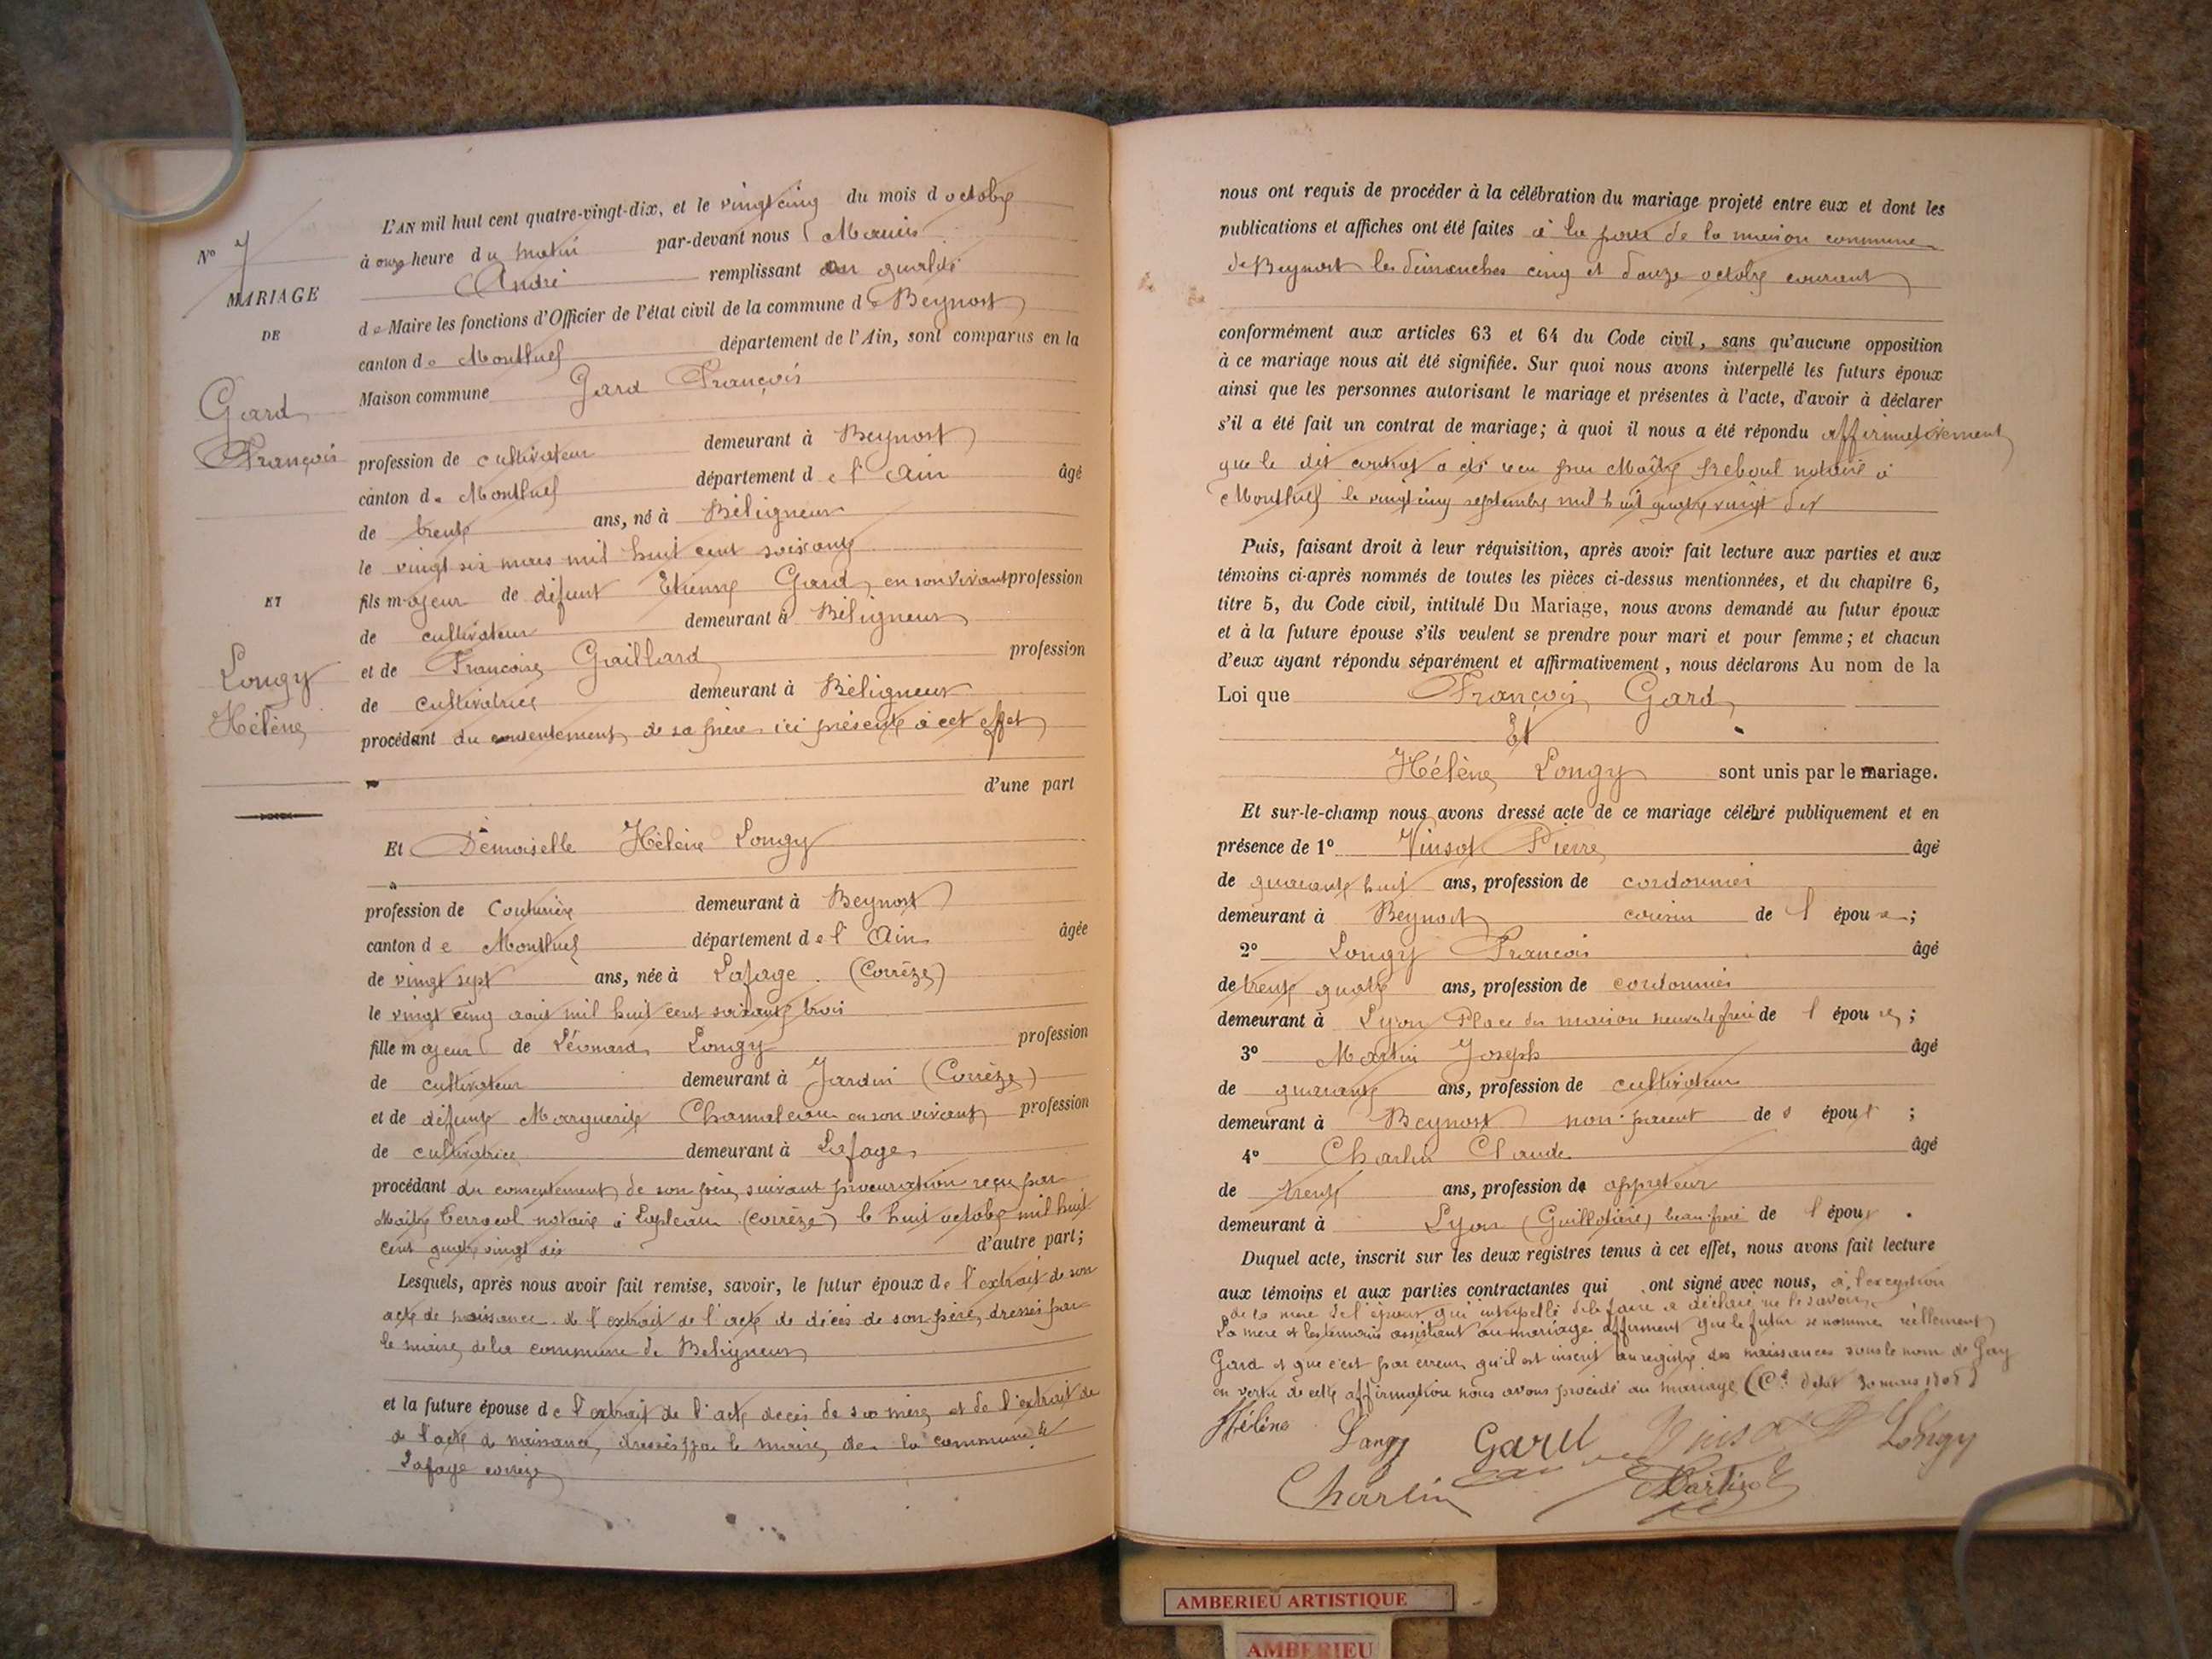 L'AN mil huit cent quatre-vingt-dix, et le vingt cinq du mois d octobre
à onze heure du matin par-devant nous
André remplissant en qualité
de Maire les fonctions d'Officier de l'état civil de la commune de Beynost
canton de Montluel département de l'Ain, sont comparus en la
Maison commune Gard François
profession de cultivateur demeurant à Beynost
canton de Montluel département de l'Ain âgé
de trente ans, né à Béligneux
le vingt six mars mil huit cent soixante
fils majeur de défunt Etienne Gard, en son vivant profession
de cultivateur demeurant à Béligneux
et de Françoise Gaillard profession
de cultivatrice demeurant à Béligneux
procédant du consentement de sa mère ici présente à cet effet
d'une part
Nº 7
MARIAGE
DE
Gard
François
ET
Longy
Hélène
Et Demoiselle Hélène Longy
profession de Couturière demeurant à Beynost
canton de Montluel département de l'Ain âgée
de vingt sept ans, née à Lafage (Corrèze)
le vingt cinq aout mil huit cent soixante trois
fille majeure de Léonard Longy profession
de cultivateur demeurant à Jardin (Corrèze)
et de défunte Marguerite en son vivant profession
de cultivatrice demeurant à Lafage
procédant du consentement de son père, suivant procuration reçu par
Maître notaire à Lapleau (Corrèze) le huit octobre mil huit
cent quatre vingt dix d'autre part;
Lesquels, après nous avoir fait remise, savoir, le futur époux de l'extrait de son
acte de naissance de l'extrait de l'acte de décès de son père, dressés par
le maire de la commune de Béligneux
et la future épouse de l'extrait de l'acte decès de sa mère et de l'extrait de
de l'acte de naissance, dressés par le maire de la commune de
Lafage corrèze
nous ont requis de procéder à la célébration du mariage projeté entre eux et dont les
publications et affiches ont été faites à la porte de la maison commune
de Beynost les dimanches cinq et douze octobre courant
conformément aux articles 63 et 64 du Code civil, sans qu'aucune opposition
à ce mariage nous ait été signifiée. Sur quoi nous avons interpellé les futurs époux
ainsi que les personnes autorisant le mariage et présentes à l'acte, d'avoir à déclarer
s'il a été fait un contrat de mariage; à quoi il nous a été répondu affirmativement
que le dit contrat a été reçu par Maître Reboul notaire à
Montluel le vingt cinq septembre mil huit quatre vingt dix
Puis, faisant droit à leur réquisition, après avoir fait lecture aux parties et aux
témoins ci-après nommés de toutes les pièces ci-dessus mentionnées, et du chapitre 6,
titre 5, du Code civil, intitulé Du Mariage, nous avons demandé au futur époux
et à la future épouse s'ils veulent se prendre pour mari et pour femme; et chacun
d'eux ayant répondu séparément et affirmativement, nous déclarons Au nom de la
Loi que François Gard
Et
Hélène Longy sont unis par le mariage.
Et sur-le-champ nous avons dressé acte de ce mariage célébré publiquement et en
présence de 1º Vinsot Pierre âgé
de quarante huit ans, profession de cordonnier
demeurant à Beynost cousin de l épouse;
2º Longy François âgé
de trente quatre ans, profession de cordonnier
demeurant à Lyon Place des maison neuve frère de l épouse;
3º Martin Joseph âgé
de quarante ans, profession de cultivateur
demeurant à Beynost non parent de s époux;
4º Charlin Claude âgé
de trente ans, profession de appreteur
demeurant à Lyon (Guillotière) beau-frère de l époux.
Duquel acte, inscrit sur les deux registres tenus à cet effet, nous avons fait lecture
aux témoins et aux parties contractantes qui ont signé avec nous, à l'exception
de la mère de l'époux qui interpellé de le faire a déclaré ne le savoir.
La mere et les temoins assistant au mariage affirment que le futur se nomme réellement
Gard et que c'est par erreur qu'il est inscrit au registre des naissances sous le nom de Gay
en vertu de cette affirmation nous avons procédé au mariage
Hélène Longy Gard Vinsot P Longy
Charlin Martin
AMBERIEU ARTISTIQUE
AMBERIEU